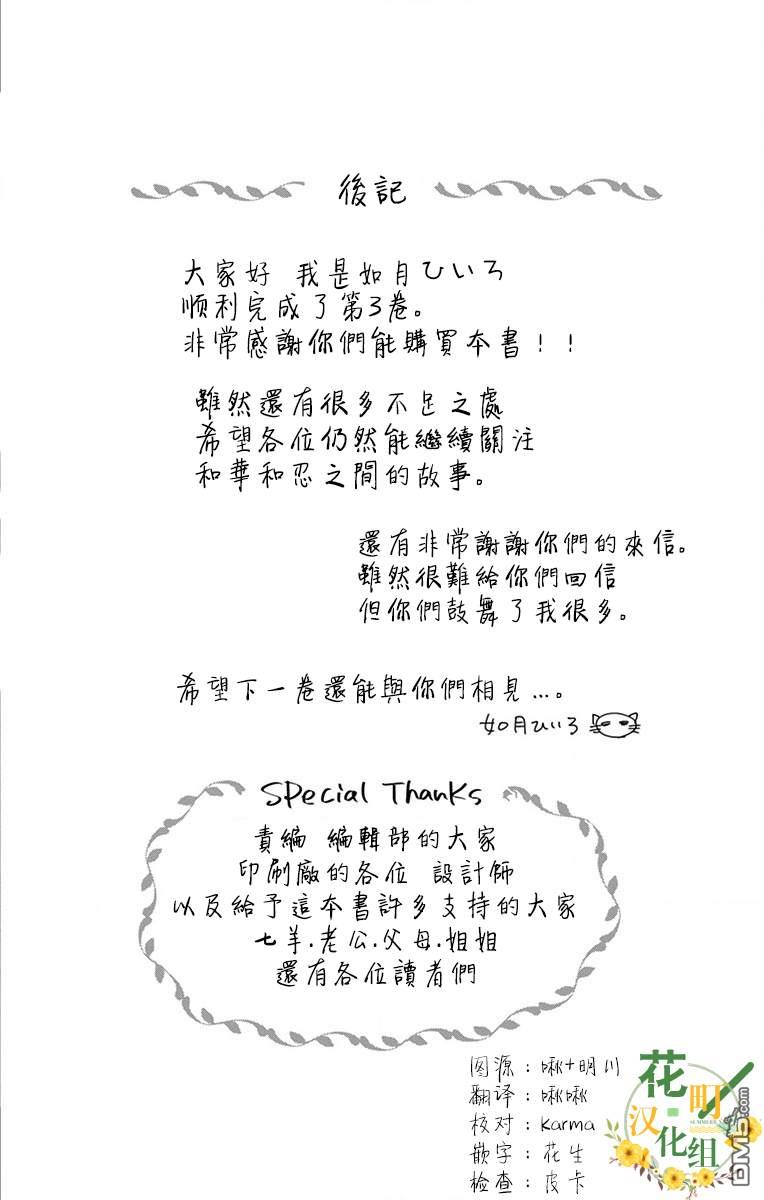 後記
大家好 我是如月ひいろ
顺利完成了第3卷。
非常感謝你們能購買本書！！
雖然還有很多不足之處
希望各位仍然能繼續關注
和華和忍之間的故事。
還有非常謝謝你們的來信。
雖然很難給你們回信
但你們鼓舞了我很多。
希望下一卷還能與你們相見…。
如月ひいろ
Special Thanks
責編 編輯部的大家
印刷廠的各位 設計師
以及給予這本書許多支持的大家
七羊.老公.父母.姐姐
還有各位讀者們
图源：啾+明川
翻译：啾啾
校对：Karma
嵌字：花生
检查：皮卡
花町
汉化组
DM5.com